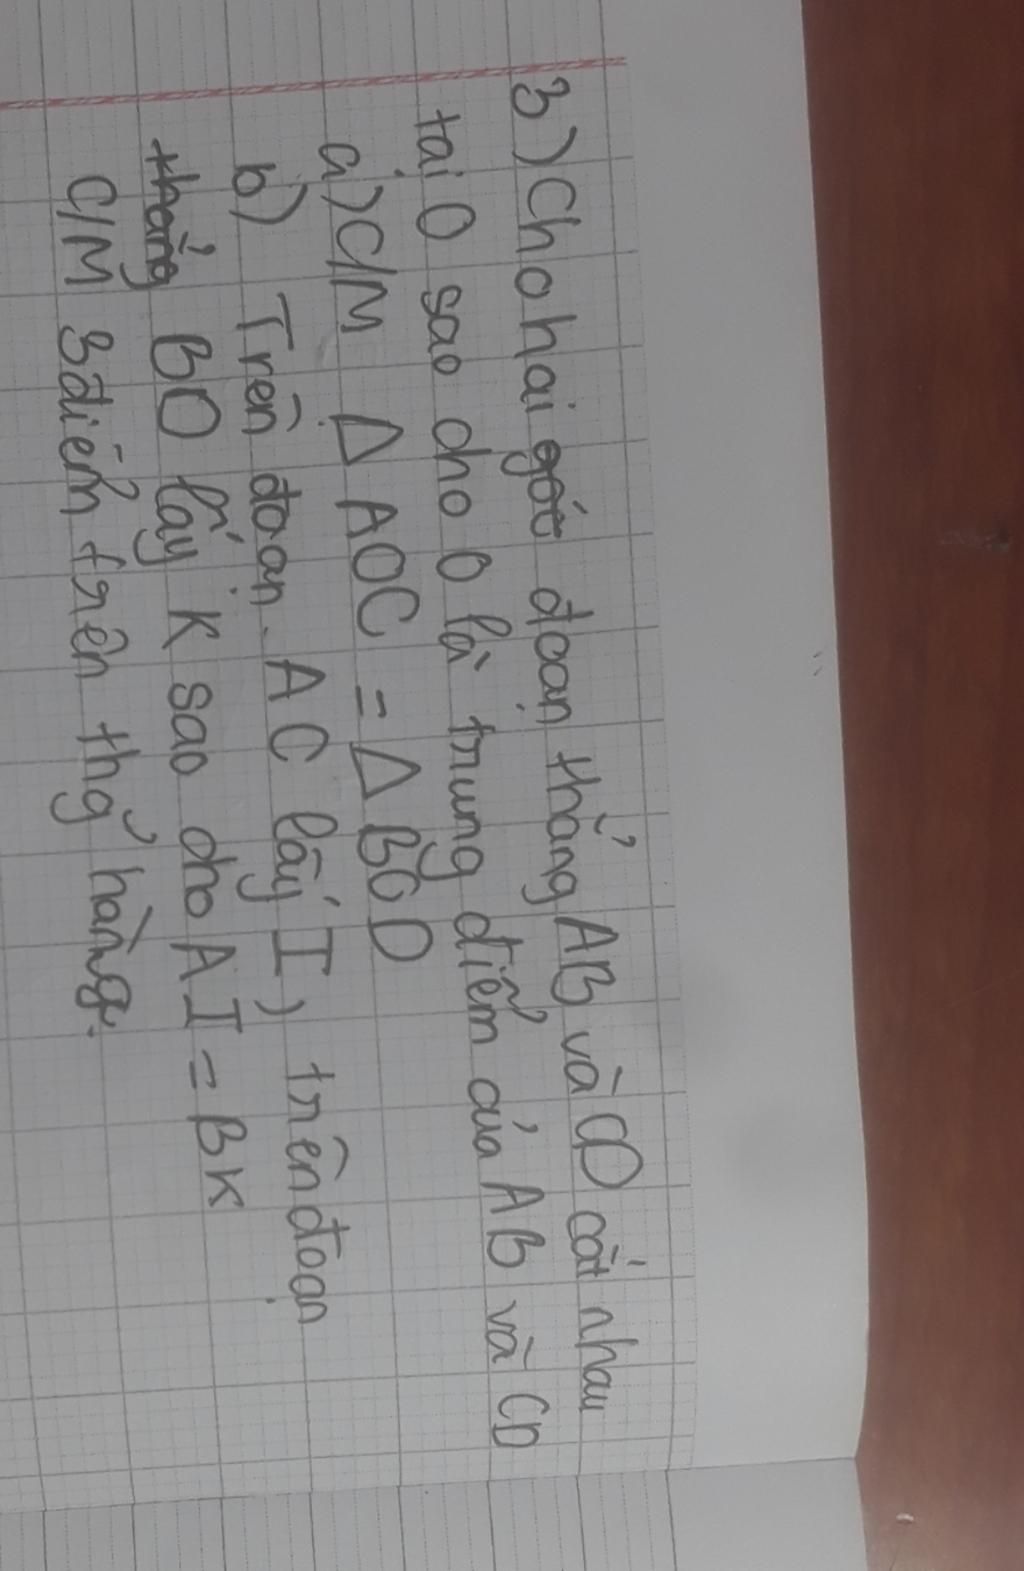 3) Cho hai góc đoạn thẳng AB và CD cắt nhau
tại O sao cho O là trung điểm của AB và CD
a) C/M Δ AOC = Δ BOD
b) Trên đoạn AC lấy I, trên đoạn
thẳng BO lấy K sao cho AI = BK
C/M 3 điểm trên thẳ hàng.